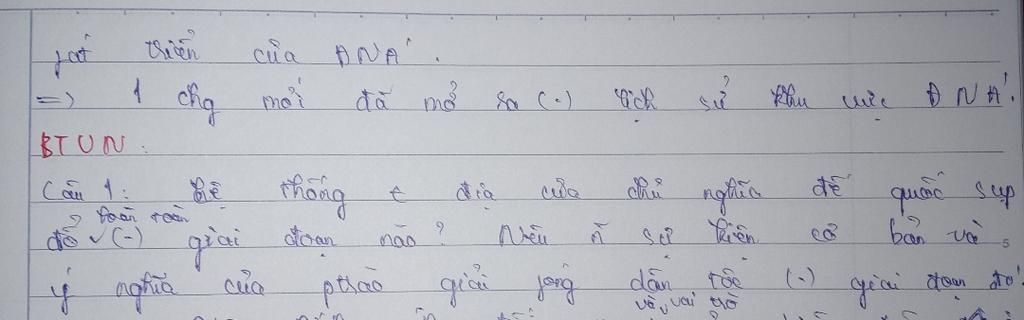 fát triển của ĐNÁ.
=> 1 chg mới đã mở ra (-) lịch sử khu vực ĐNÁ.
BTVN:
Câu 1: Hệ thống t địa của chủ nghĩa đế quốc sụp
toàn toàn
đổ ✓ (-) giai đoạn nào? Nêu ~ sự kiện cơ bản và
ý nghĩa của ptrào giải fóng dân tộc (-) giai đoạn đó.
và, vai trò